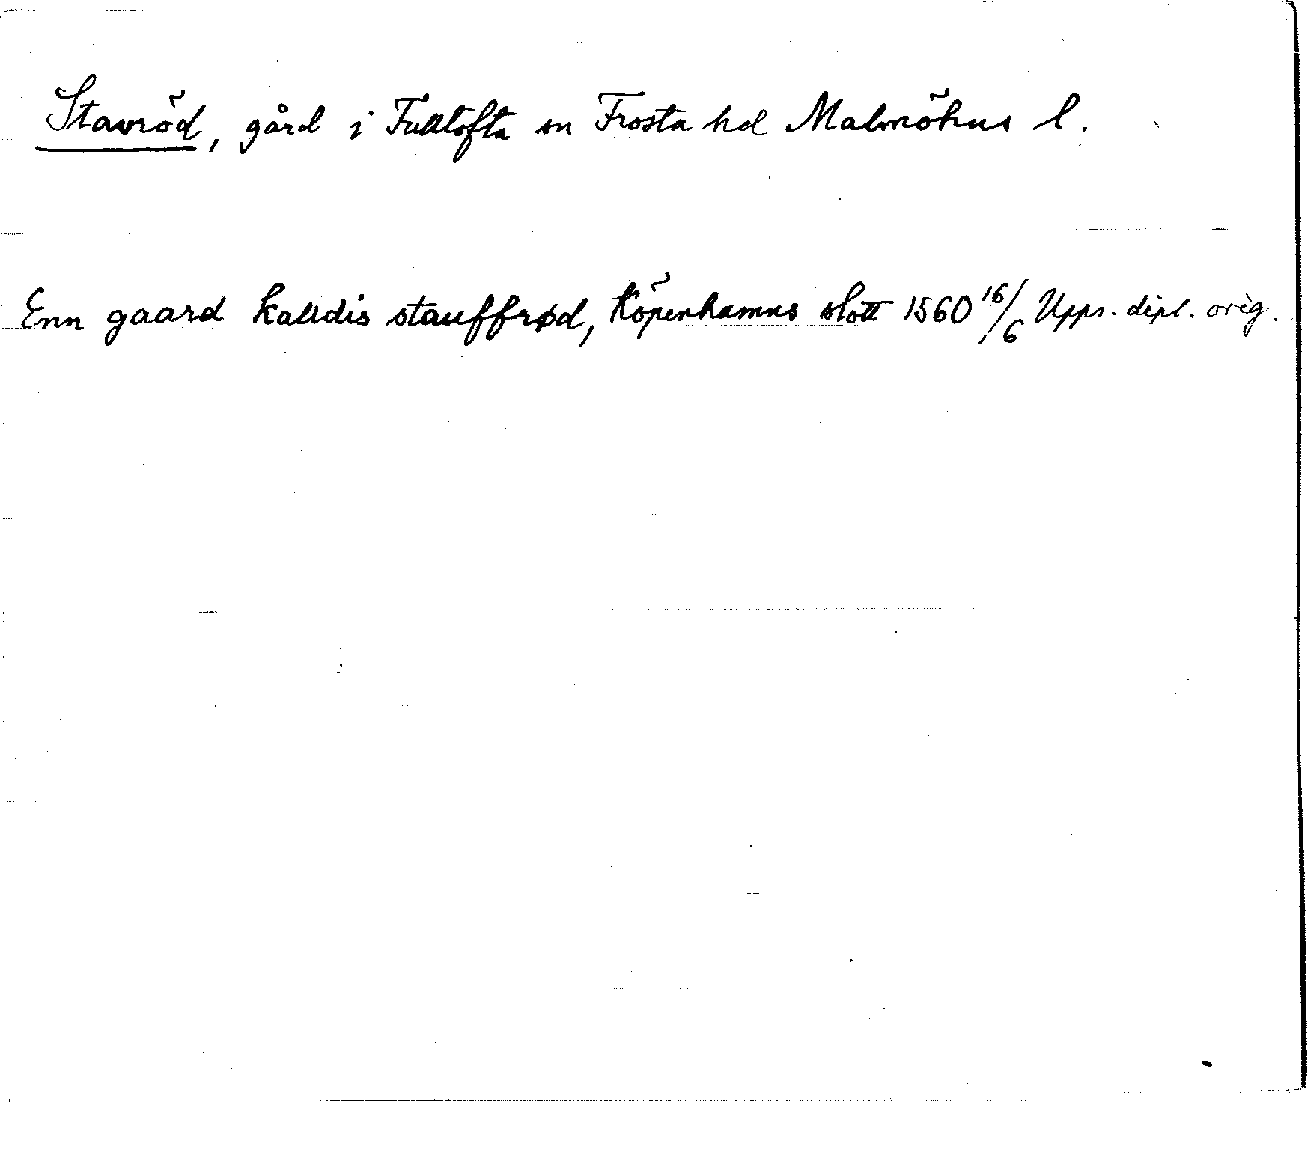 Stavröd, gård i Fulltofta sn Frosta hd Malmöhus l.
Enn gaard kalldis stauffrød, Köpenhamns slott 1560 16/6 Upps. dipl. orig.